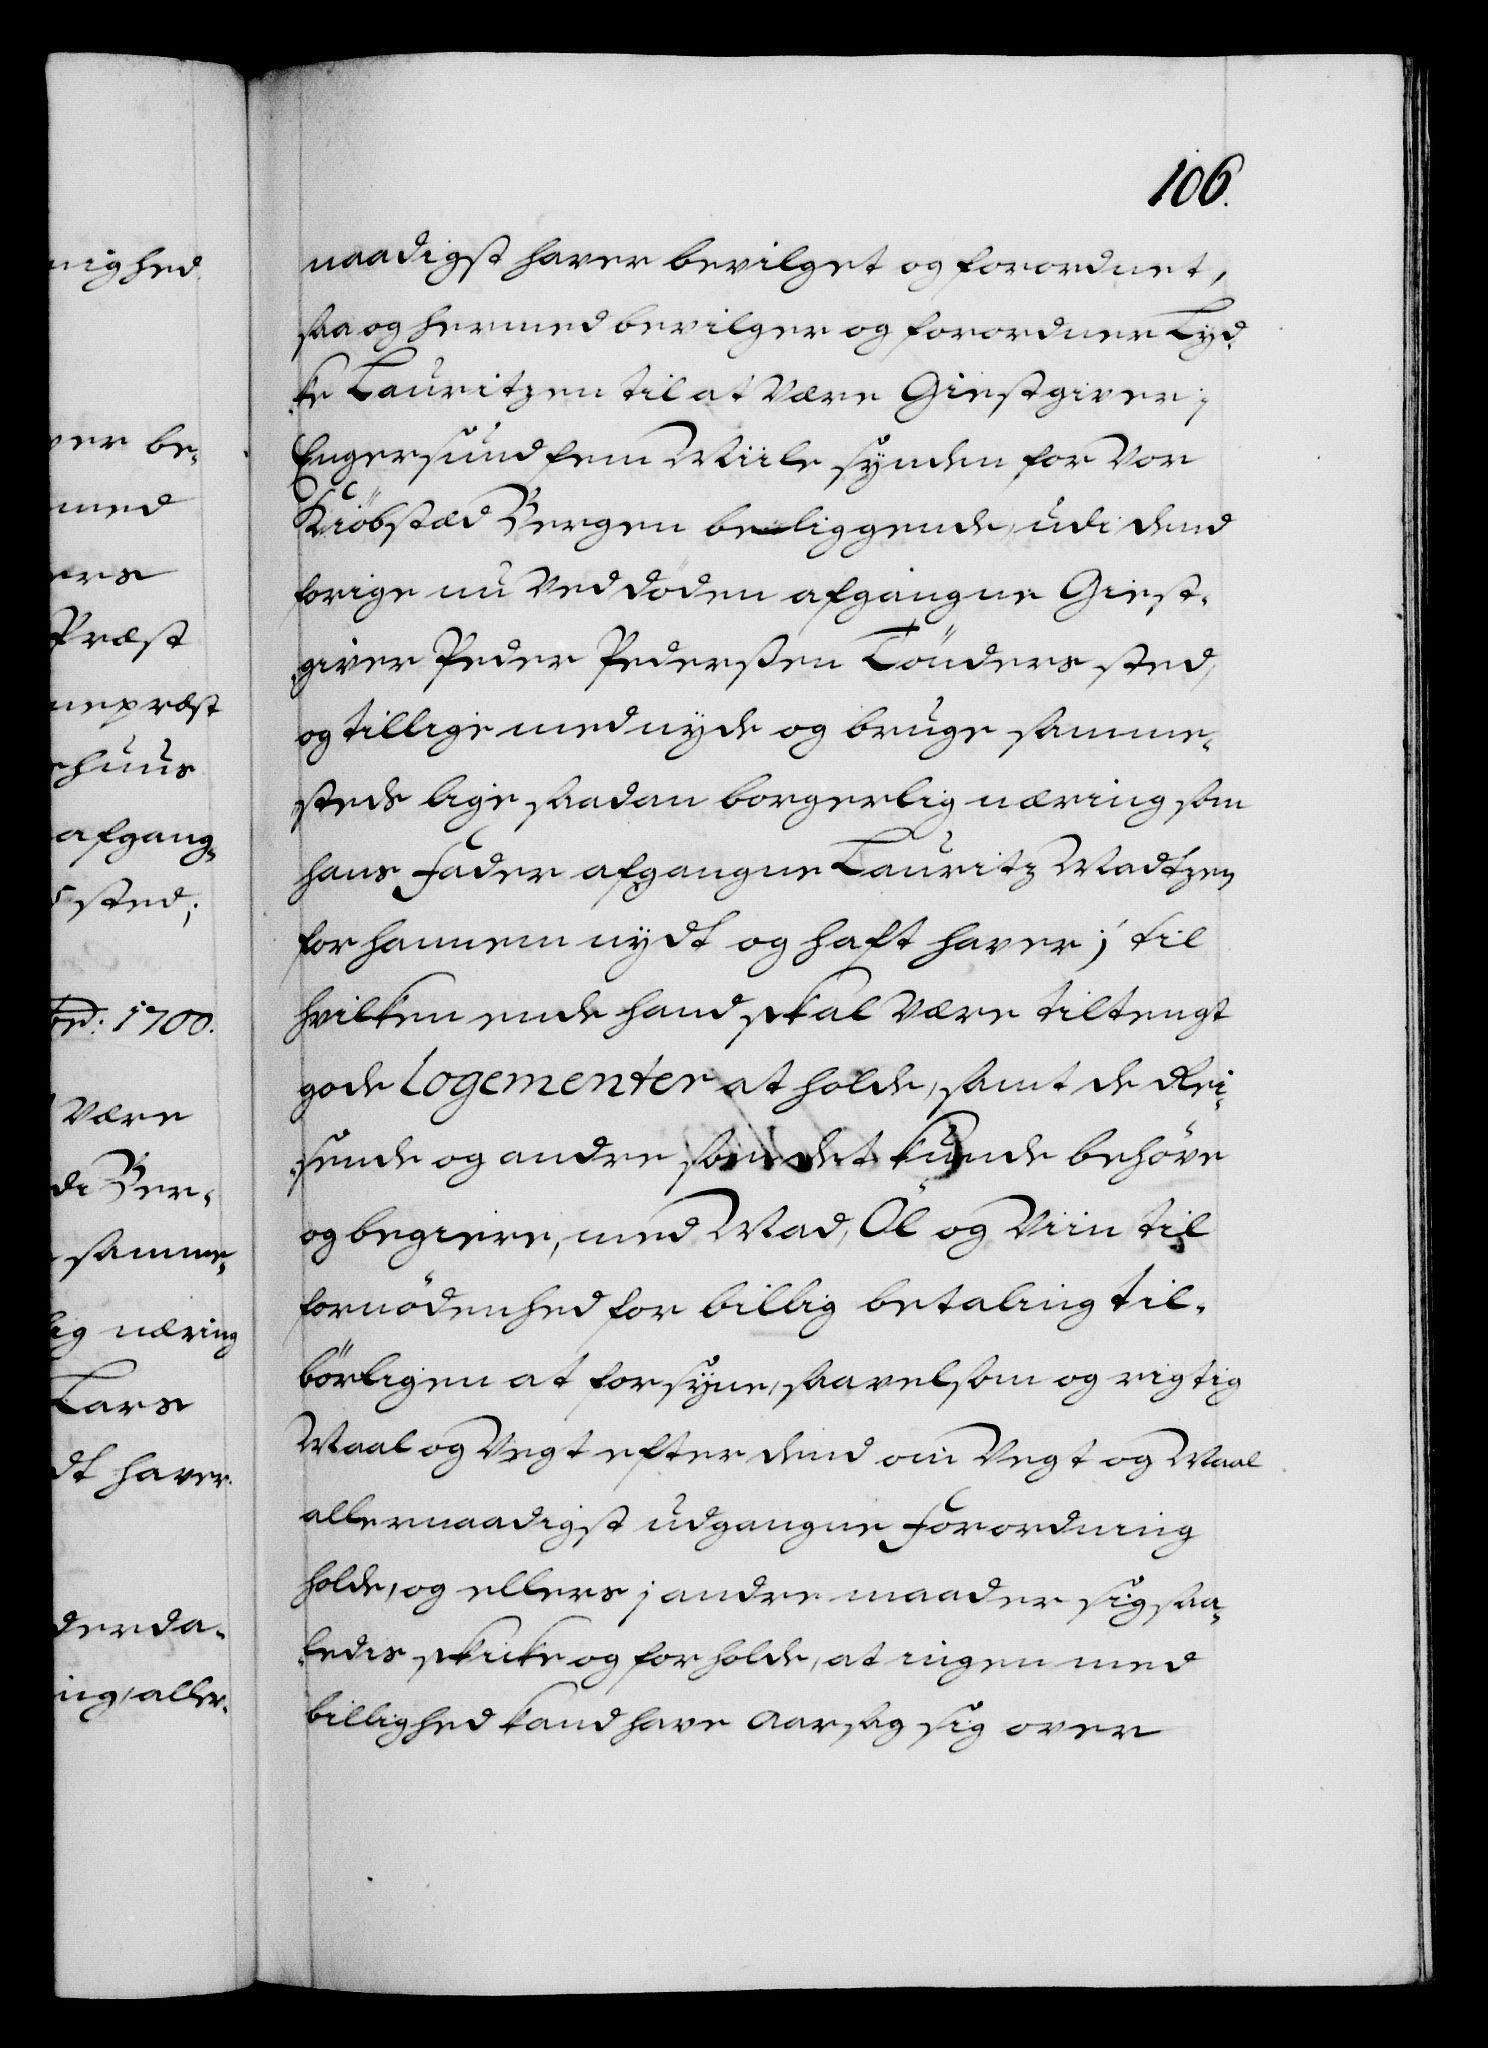 106.
naadigst haver bevilget og forordnet,
saa og hermed bevilger og forordner Lyd-
ke Lauritzen til at være Giestgiver i
Engersund fem Miile synden for Vor
Kiöbstæd Bergen beliggende, udi dend
forige nu ved döden afgangne Giest-
giver Peder Pederssen Tönders sted,
og tillige med nyde og bruge samme-
steds lige saadan borgerlig næring som
hans Fader afgangne Lauritz Madtzen
for hannem nydt og haft haver; til
hvilken ende hand skal være tiltengt
gode Logementer at holde, samt de Rei-
sende og andre som det kunde behöve
og begiere, med Mad, Öl og Viin til
fornödenhed for billig betaling til-
börligen at forsyne, saavelsom og rigtig
Maal og Vegt efter dend om Vegt og Maal
allernaadigst udgangne Forordning
holde, og ellers i andre maader sig saa-
ledis skicke og forholde, at ingen med
billighed kand have Aarsag sig over
nighed
ver be-
med
ers
Præst
nepræst
ehuus
afgang-
sted;
1700.
være
di Ber-
samme-
lig næring
Lars
dt haver.
derda-
ing, aller-